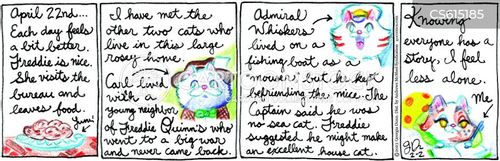 CS615185
April 22nd...
Each day feels
a bit better.
Freddie is nice.
She visits the
bureau and
leaves food.
Yum!
I have met the
other two cats who
live in this large
rosey home.
Carl lived
with a
young neighbor
of Freddie Quinn's who
went to a big war
and never came back.
Admiral
Whiskers
lived on a
fishing boat as a
"mouser" but he kept
befriending the mice. The
Captain said he was
no sea cat. Freddie
suggested he might make
an excellent house cat.
Knowing
everyone has a
story, I feel
less alone.
Me
2-2